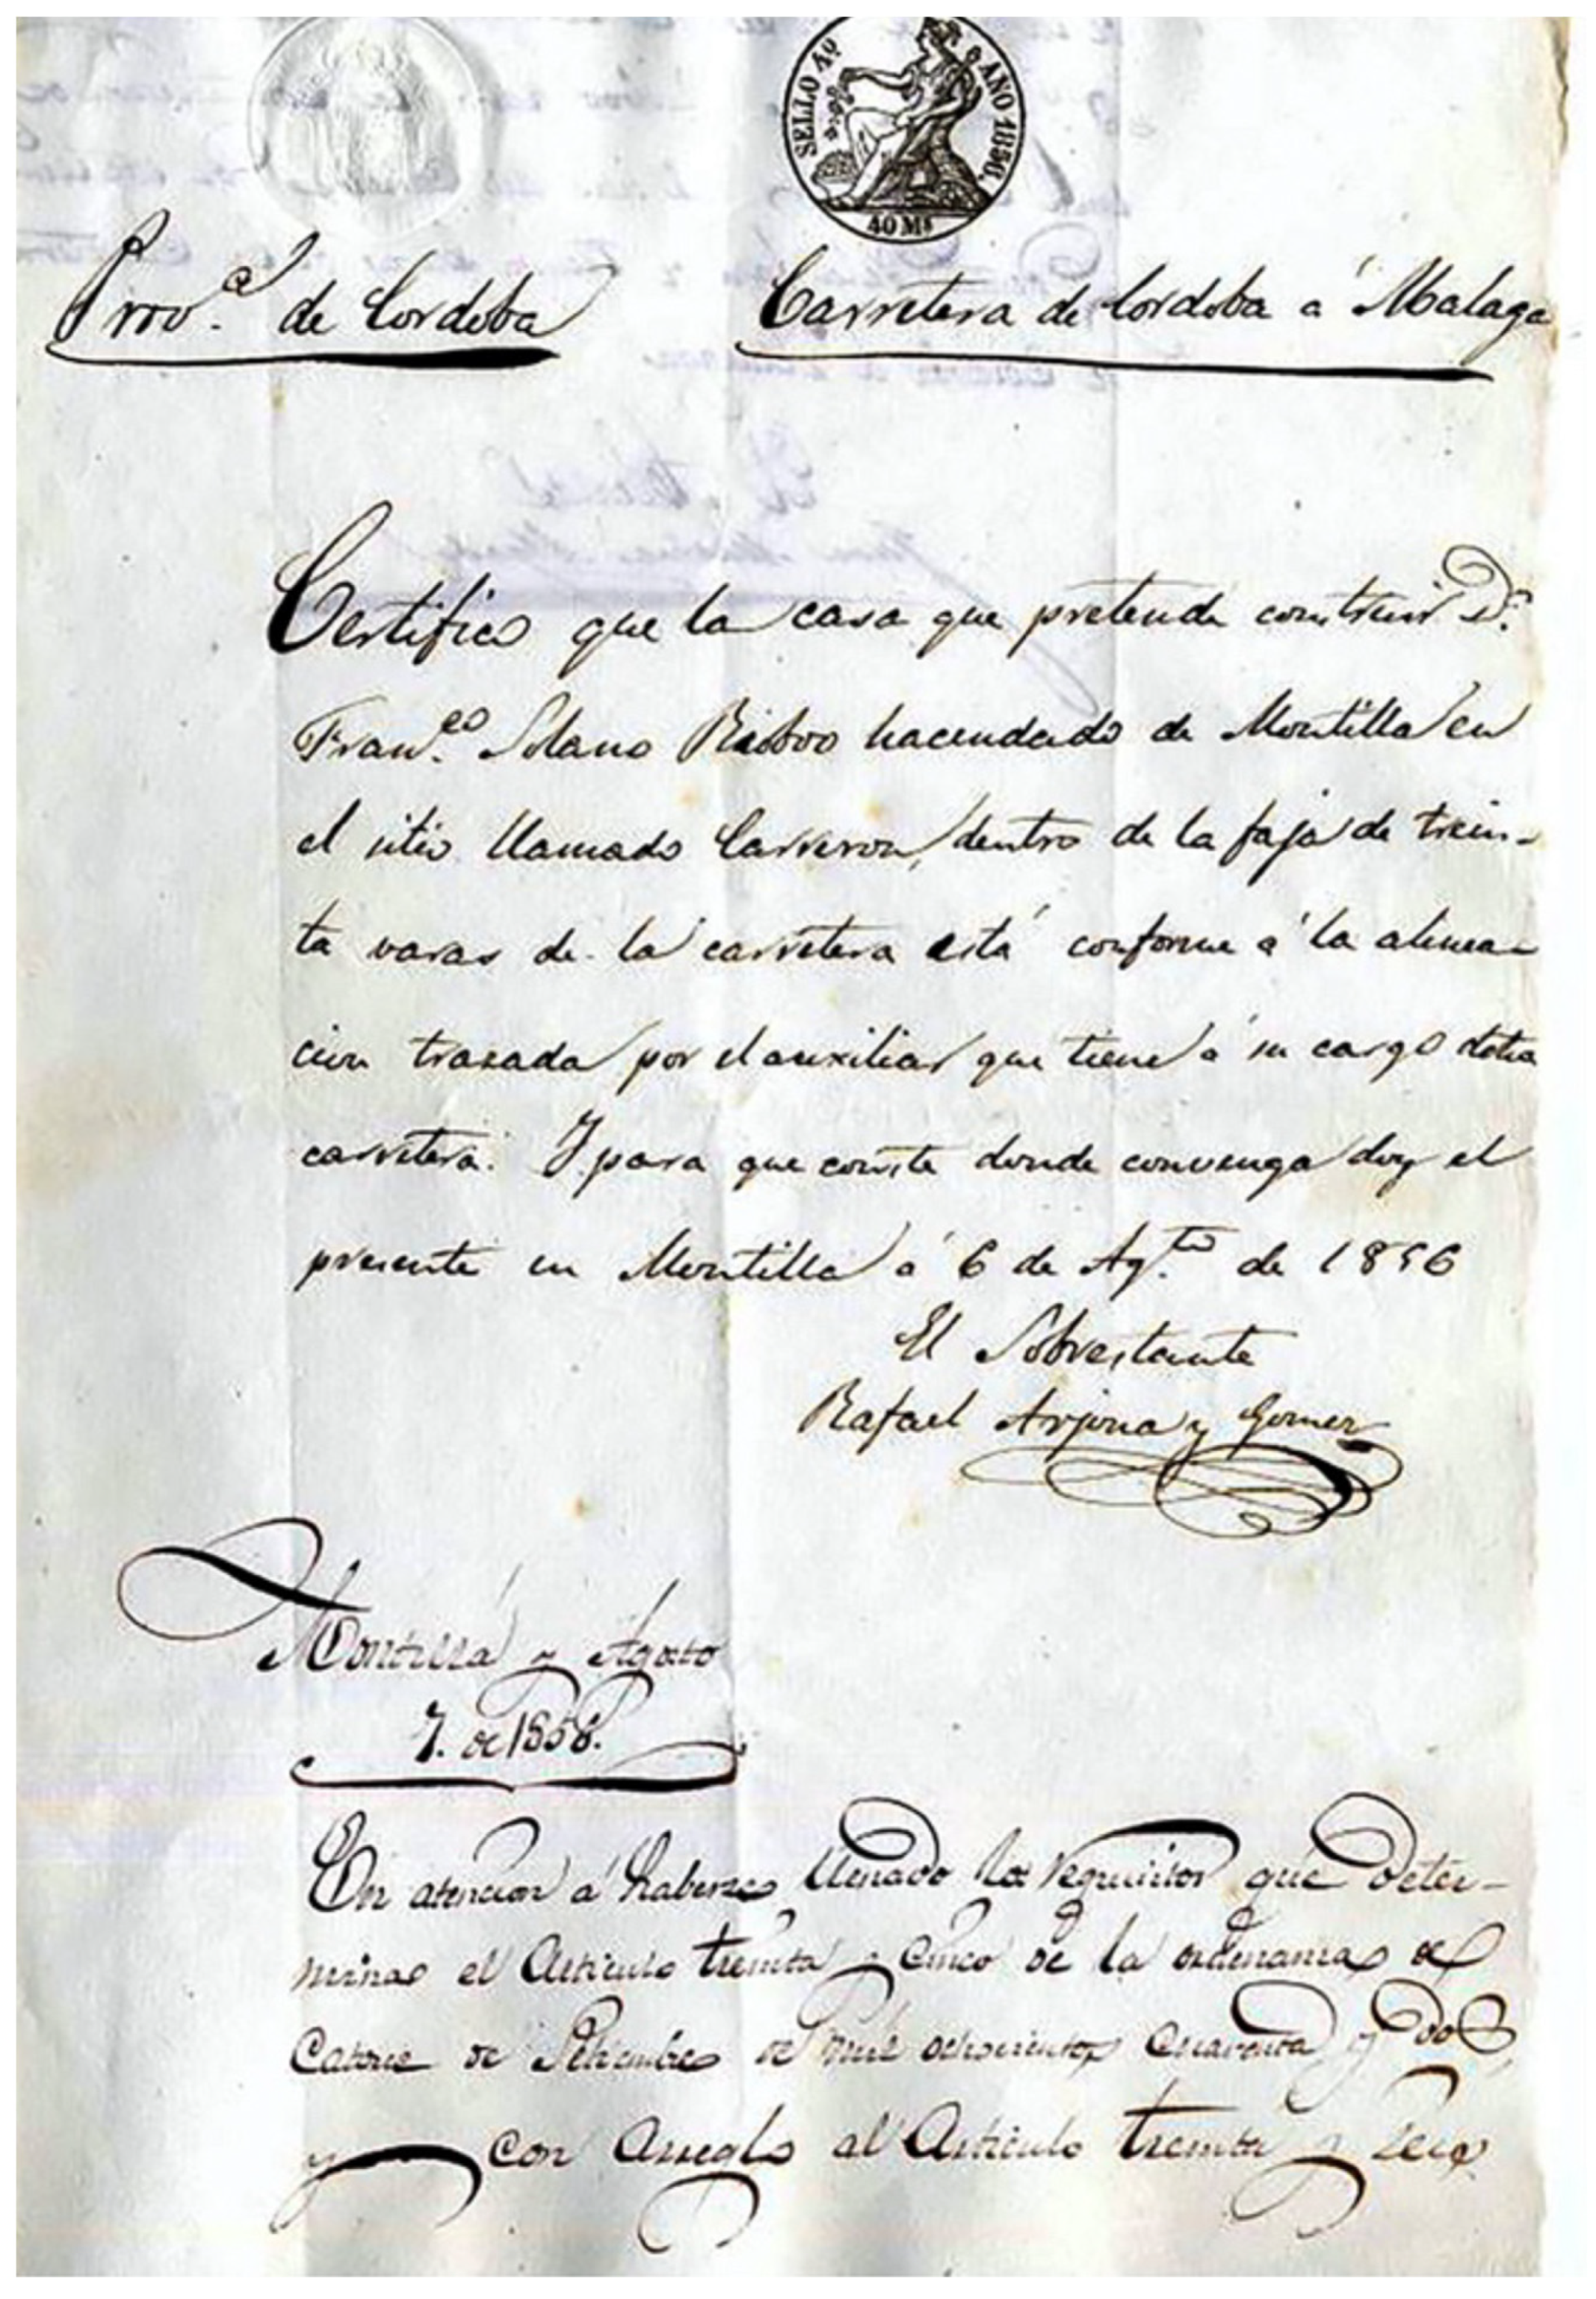 SELLO 4º
AÑO 1856.
40 Mˢ
Provᵃ. de Cordoba
Carretera de Cordoba á Malaga
Certifico que la casa que pretende construir D.ⁿ
Fran.ᶜᵒ Solano Riobóo hacendado de Montilla en
el sitio llamado Carreron, dentro de la faja de trein-
ta varas de la carretera está conforme á la alinea-
cion trazada por el auxiliar que tiene á su cargo dicha
carretera. Y para que conste donde convenga doy el
presente en Montilla á 6 de Ag.ᵗᵒ de 1856
El Sobrestante
Rafael Arjona y Gomez
Montilla y Agosto
7. de 1856.
En atencion á haberse llenado los requisitos que deter-
minas el Articulo treinta y cinco de la ordenanza de
Catorce de Setiembre de mil ochocientos cuarenta y dos,
y con arreglo al Articulo treinta y seis